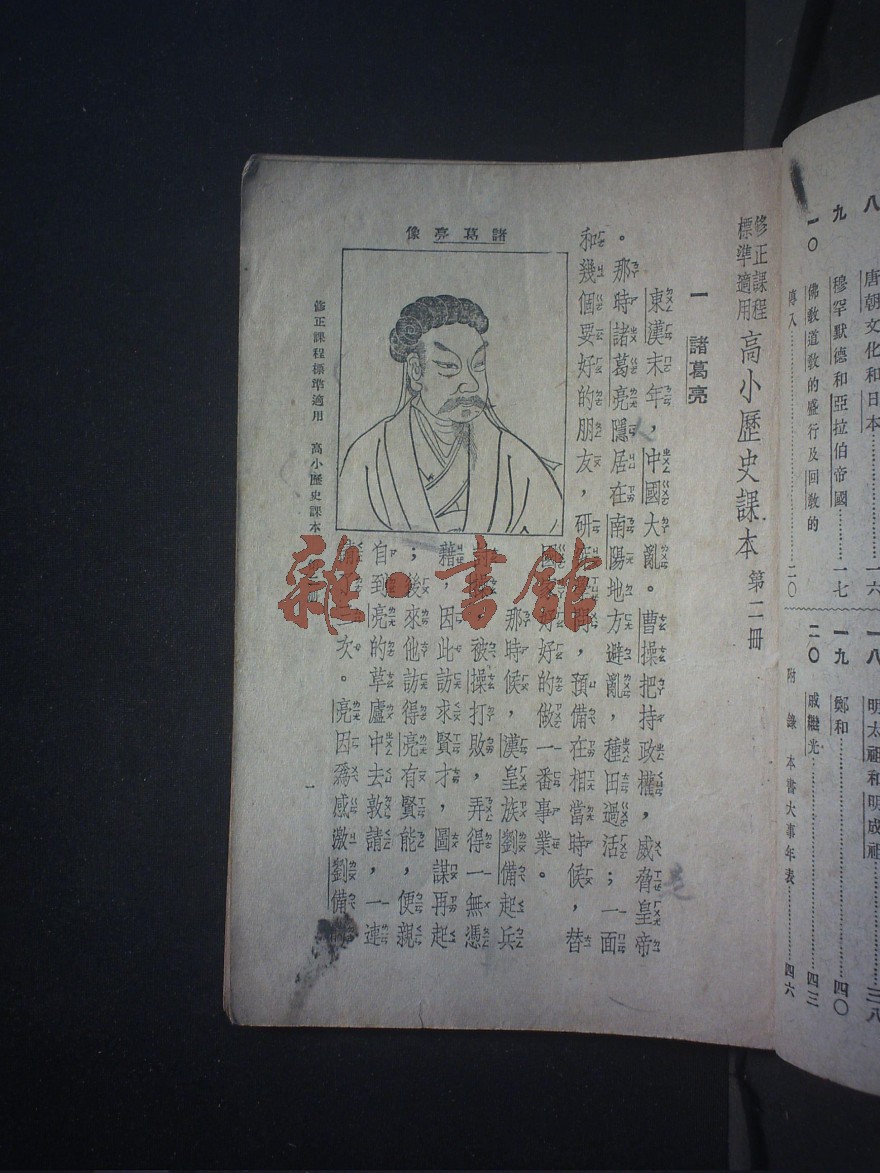 八 唐朝文化和日本……一六
九 穆罕默德和亞拉伯帝國……一七
一〇 佛教道教的盛行及回教的
傳入……二〇
一八 明太祖和明成祖……三八
一九 鄭和……四〇
二〇 戚繼光……四三
附錄 本書大事年表……四六
修正課程標準適用 高小歷史課本 第二冊
一 諸葛亮
東漢末年，中國大亂。曹操把持政權，威脅皇帝
。那時諸葛亮隱居在南陽地方避亂，種田過活；一面
和幾個要好的朋友，研，預備在相當時候，替
國好好的做一番事業。
諸葛亮像
那時候，漢皇族劉備起兵
，被操打敗，弄得一無憑
藉，因此訪求賢才，圖謀再起
；後來他訪得亮有賢能，便親
自到亮的草廬中去敦請，一連
次。亮因爲感激劉備
修正課程標準適用 高小歷史課本
一
雜·書館